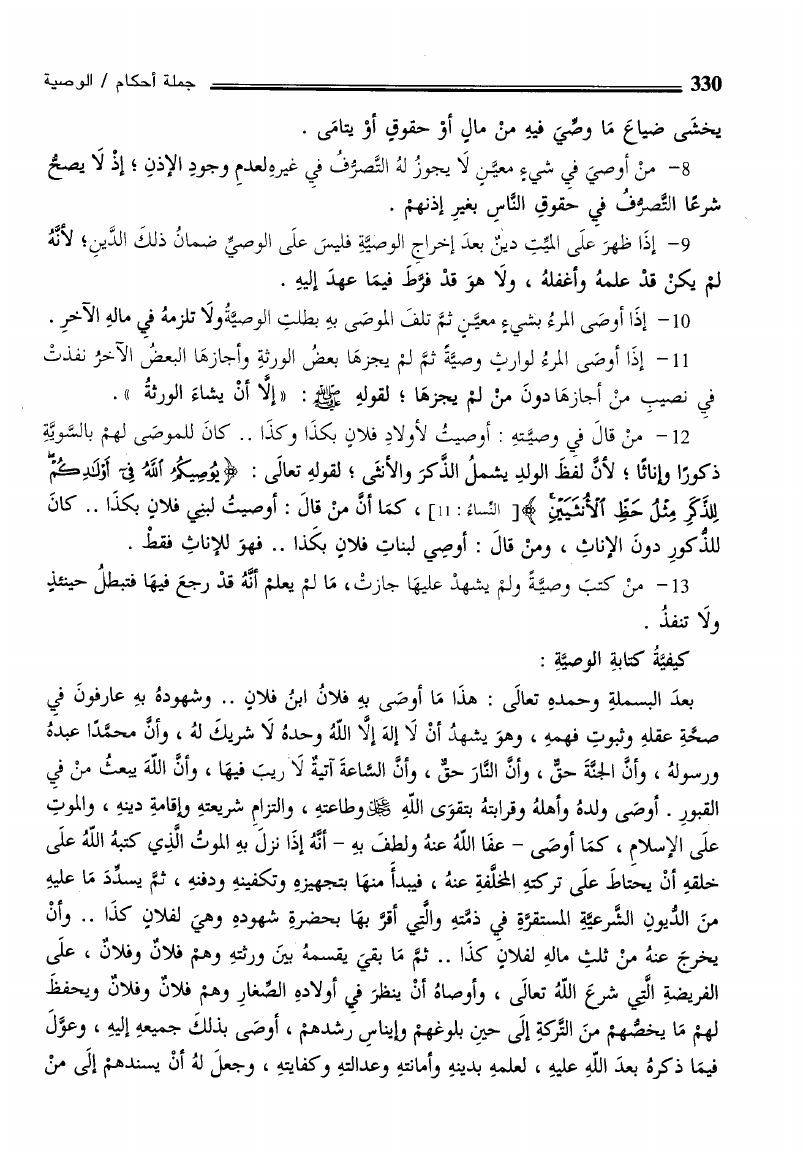 330 جملة أحكام / الوصية
يخشَى ضياعَ مَا وصِّيَ فيهِ منْ مالٍ أوْ حقوقٍ أوْ يتامَى .
8– منْ أوصيَ في شيءٍ معيَّنٍ لَا يجوزُ لهُ التَّصرُّفُ في غيرهِ لعدمِ وجودِ الإذنِ ؛ إذْ لَا يصحُّ
شرعًا التَّصرُّفُ في حقوقِ النَّاسِ بغيرِ إذنهمْ .
9– إذَا ظهرَ علَى الميِّتِ دينٌ بعدَ إخراجِ الوصيَّةِ فليسَ علَى الوصيِّ ضمانُ ذلكَ الدَّينِ؛ لأنَّهُ
لمْ يكنْ قدْ علمهُ وأغفلهُ ، ولَا هوَ قدْ فرَّطَ فيمَا عهدَ إليهِ .
10– إذَا أوصَى المرءُ بشيءٍ معيَّنٍ ثمَّ تلفَ الموصَى بهِ بطلتِ الوصيَّةُ ولَا تلزمهُ في مالهِ الآخرِ .
11– إذَا أوصَى المرءُ لوارثٍ وصيَّةً ثمَّ لمْ يجزهَا بعضُ الورثةِ وأجازهَا البعضُ الآخرُ نفذتْ
في نصيبِ منْ أجازهَا دونَ منْ لمْ يجزهَا ؛ لقولهِ ﷺ : « إلَّا أنْ يشاءَ الورثةُ » .
12– منْ قالَ في وصيَّتهِ : أوصيتُ لأولادِ فلانٍ بكذَا وكذَا .. كانَ للموصَى لهمْ بالسَّويَّةِ
ذكورًا وإناثًا ؛ لأنَّ لفظَ الولدِ يشملُ الذَّكرَ والأنثَى ؛ لقولهِ تعالَى : ﴿ يُوصِيكُمُ ٱللَّهُ فِىٓ أَوْلَـٰدِكُمْ ۖ
لِلذَّكَرِ مِثْلُ حَظِّ ٱلْأُنثَيَيْنِ ۚ ﴾ [ النِّساءُ : 11] ، كمَا أنَّ منْ قالَ : أوصيتُ لبنِي فلانٍ بكذَا .. كانَ
للذُّكورِ دونَ الإناثِ ، ومنْ قالَ : أوصِي لبناتِ فلانٍ بكذَا .. فهوَ للإناثِ فقطْ .
13– منْ كتبَ وصيَّةً ولمْ يشهدْ عليهَا جازتْ، مَا لمْ يعلمْ أنَّهُ قدْ رجعَ فيهَا فتبطلُ حينئذٍ
ولَا تنفذُ .
كيفيَّةُ كتابةِ الوصيَّةِ :
بعدَ البسملةِ وحمدهِ تعالَى : هذَا مَا أوصَى بهِ فلانُ ابنُ فلانٍ .. وشهودهُ بهِ عارفونَ في
صحَّةِ عقلهِ وثبوتِ فهمهِ ، وهوَ يشهدُ أنْ لَا إلهَ إلَّا اللَّهُ وحدهُ لَا شريكَ لهُ ، وأنَّ محمَّدًا عبدهُ
ورسولهُ ، وأنَّ الجنَّةَ حقٌّ ، وأنَّ النَّارَ حقٌّ ، وأنَّ السَّاعةَ آتيةٌ لَا ريبَ فيهَا ، وأنَّ اللَّهَ يبعثُ منْ في
القبورِ . أوصَى ولدهُ وأهلهُ وقرابتهُ بتقوَى اللَّهِ وطاعتهِ ، والتزامِ شريعتهِ وإقامةِ دينهِ ، والموتِ
علَى الإسلامِ ، كمَا أوصَى – عفَا اللَّهُ عنهُ ولطفَ بهِ – أنَّهُ إذَا نزلَ بهِ الموتُ الَّذي كتبهُ اللَّهُ علَى
خلقهِ أنْ يحتاطَ علَى تركتهِ المخلَّفةِ عنهُ ، فيبدأَ منهَا بتجهيزهِ وتكفينهِ ودفنهِ ، ثمَّ يسدِّدَ مَا عليهِ
منَ الدُّيونِ الشَّرعيَّةِ المستقرَّةِ في ذمَّتهِ والَّتِي أقرَّ بهَا بحضرةِ شهودهِ وهيَ لفلانٍ كذَا .. وأنْ
يخرجَ عنهُ منْ ثلثِ مالهِ لفلانٍ كذَا .. ثمَّ مَا بقيَ يقسمهُ بينَ ورثتهِ وهمْ فلانٌ وفلانٌ ، علَى
الفريضةِ الَّتِي شرعَ اللَّهُ تعالَى ، وأوصاهُ أنْ ينظرَ في أولادهِ الصِّغارِ وهمْ فلانٌ وفلانٌ ويحفظَ
لهمْ مَا يخصُّهمْ منَ التَّركةِ إلَى حينِ بلوغهمْ وإيناسِ رشدهمْ ، أوصَى بذلكَ جميعهِ إليهِ ، وعوَّلَ
فيمَا ذكرهُ بعدَ اللَّهِ عليهِ ، لعلمهِ بدينهِ وأمانتهِ وعدالتهِ وكفايتهِ ، وجعلَ لهُ أنْ يسندهمْ إلَى منْ